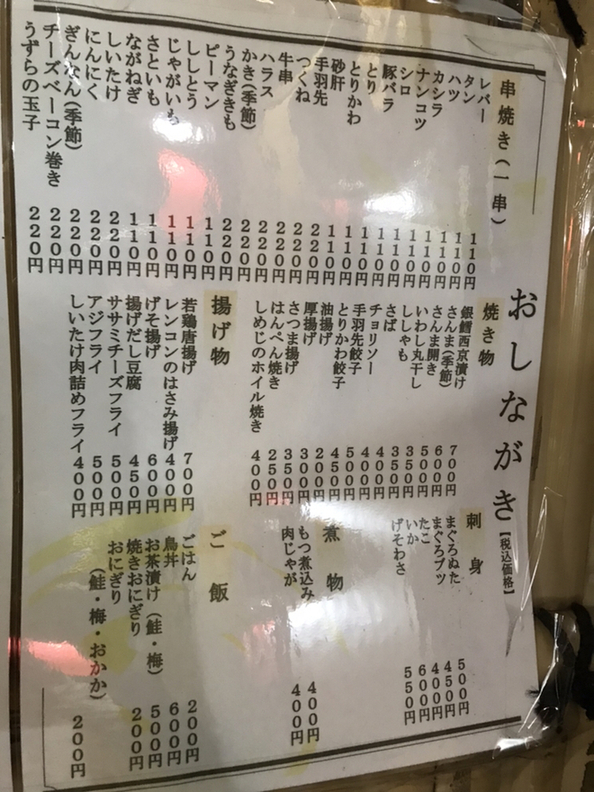 おしながき【税込価格】
串焼き（一串）
レバー 110円
タン 110円
ハツ 110円
カシラ 110円
ナンコツ 110円
シロ 110円
豚バラ 110円
とり 110円
とりかわ 110円
砂肝 110円
手羽先 220円
つくね 220円
牛串 220円
ハラス 220円
かき(季節) 220円
うなぎきも 220円
ピーマン 110円
ししとう 110円
じゃがいも 110円
さといも 110円
ながねぎ 110円
しいたけ 220円
にんにく 220円
ぎんなん(季節) 220円
チーズベーコン巻き 220円
うずらの玉子 220円
焼き物
銀鱈西京漬け 700円
さんま(季節) 600円
さんま開き 500円
いわし丸干し 350円
ししゃも 350円
さば 400円
チョリソー 400円
手羽先餃子 500円
とりかわ餃子 450円
油揚げ 200円
厚揚げ 300円
さつま揚げ 350円
はんぺん焼き 250円
しめじのホイル焼き 400円
揚げ物
若鶏唐揚げ 700円
レンコンのはさみ揚げ 400円
げそ揚げ 600円
揚げだし豆腐 450円
ササミチーズフライ 500円
アジフライ 500円
しいたけ肉詰めフライ 400円
刺身
まぐろぬた 500円
まぐろブツ 450円
たこ 400円
いか 600円
げそわさ 550円
煮物
もつ煮込み 400円
肉じゃが 400円
ご飯
ごはん 200円
鳥丼 600円
お茶漬け（鮭・梅） 500円
焼きおにぎり 200円
おにぎり
（鮭・梅・おかか） 200円